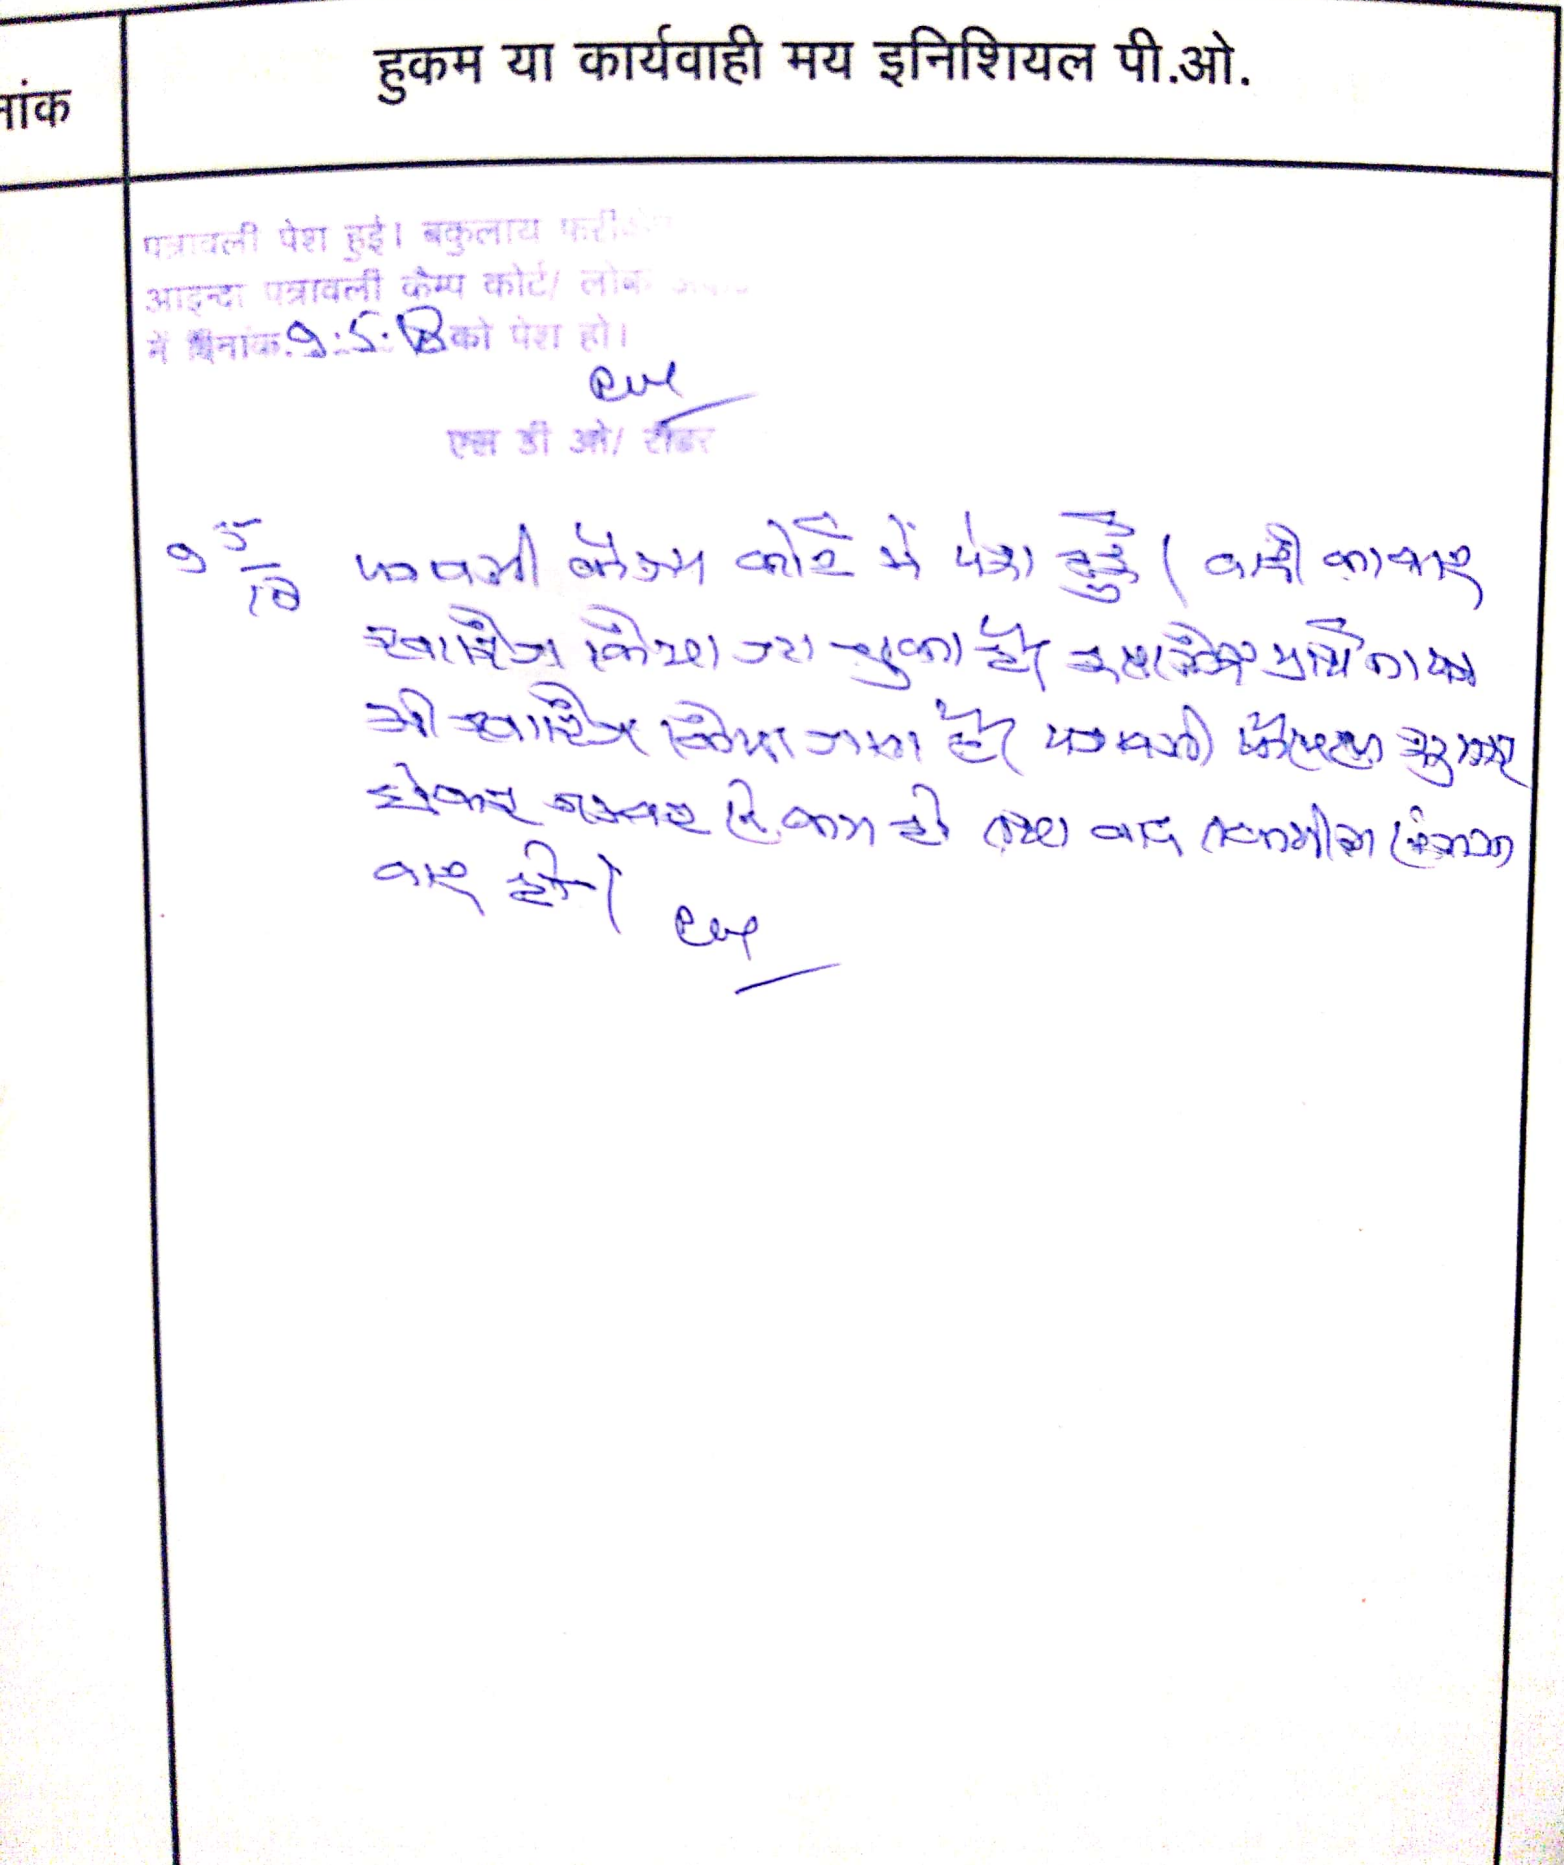 हुकम या कार्यवाही मय इनिशियल पी.ओ.
नांक
पत्रावली पेश हुई। बकुलाय
आइन्दा पत्रावली कैम्प कोर्ट/ लोक
में दिनांक 9.5.18 को पेश हो।
एस डी ओ/ रीडर
9 5/18 पत्रावली कैम्प कोर्ट में पेश हुई। वादी का वाद
खारिज किया जा चुका है। इसलिए प्रार्थना पत्र
भी खारिज किया जाता है। पत्रावली फैसल शुमार
होकर नम्बर से कम हो तथा बाद तकमील
हो।